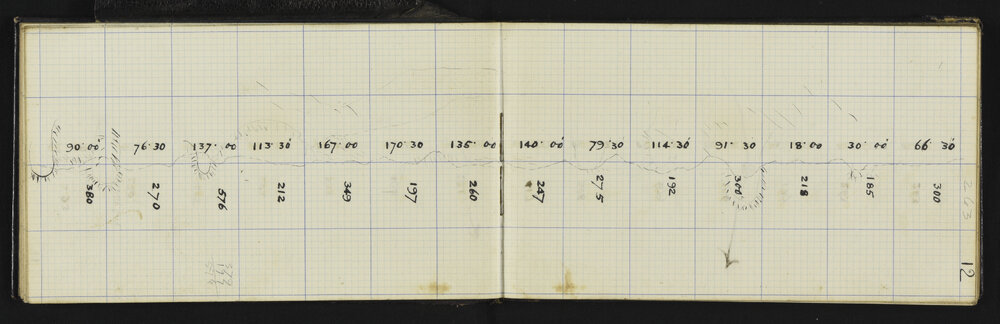 90.00 76.30 137.00 113.30 167.00 170.30 135.00 140.00 79.30 114.30 91.30 18.00 30.00 66.30
380 270 576 212 349 197 260 247 275 192 300 218 185 300
12